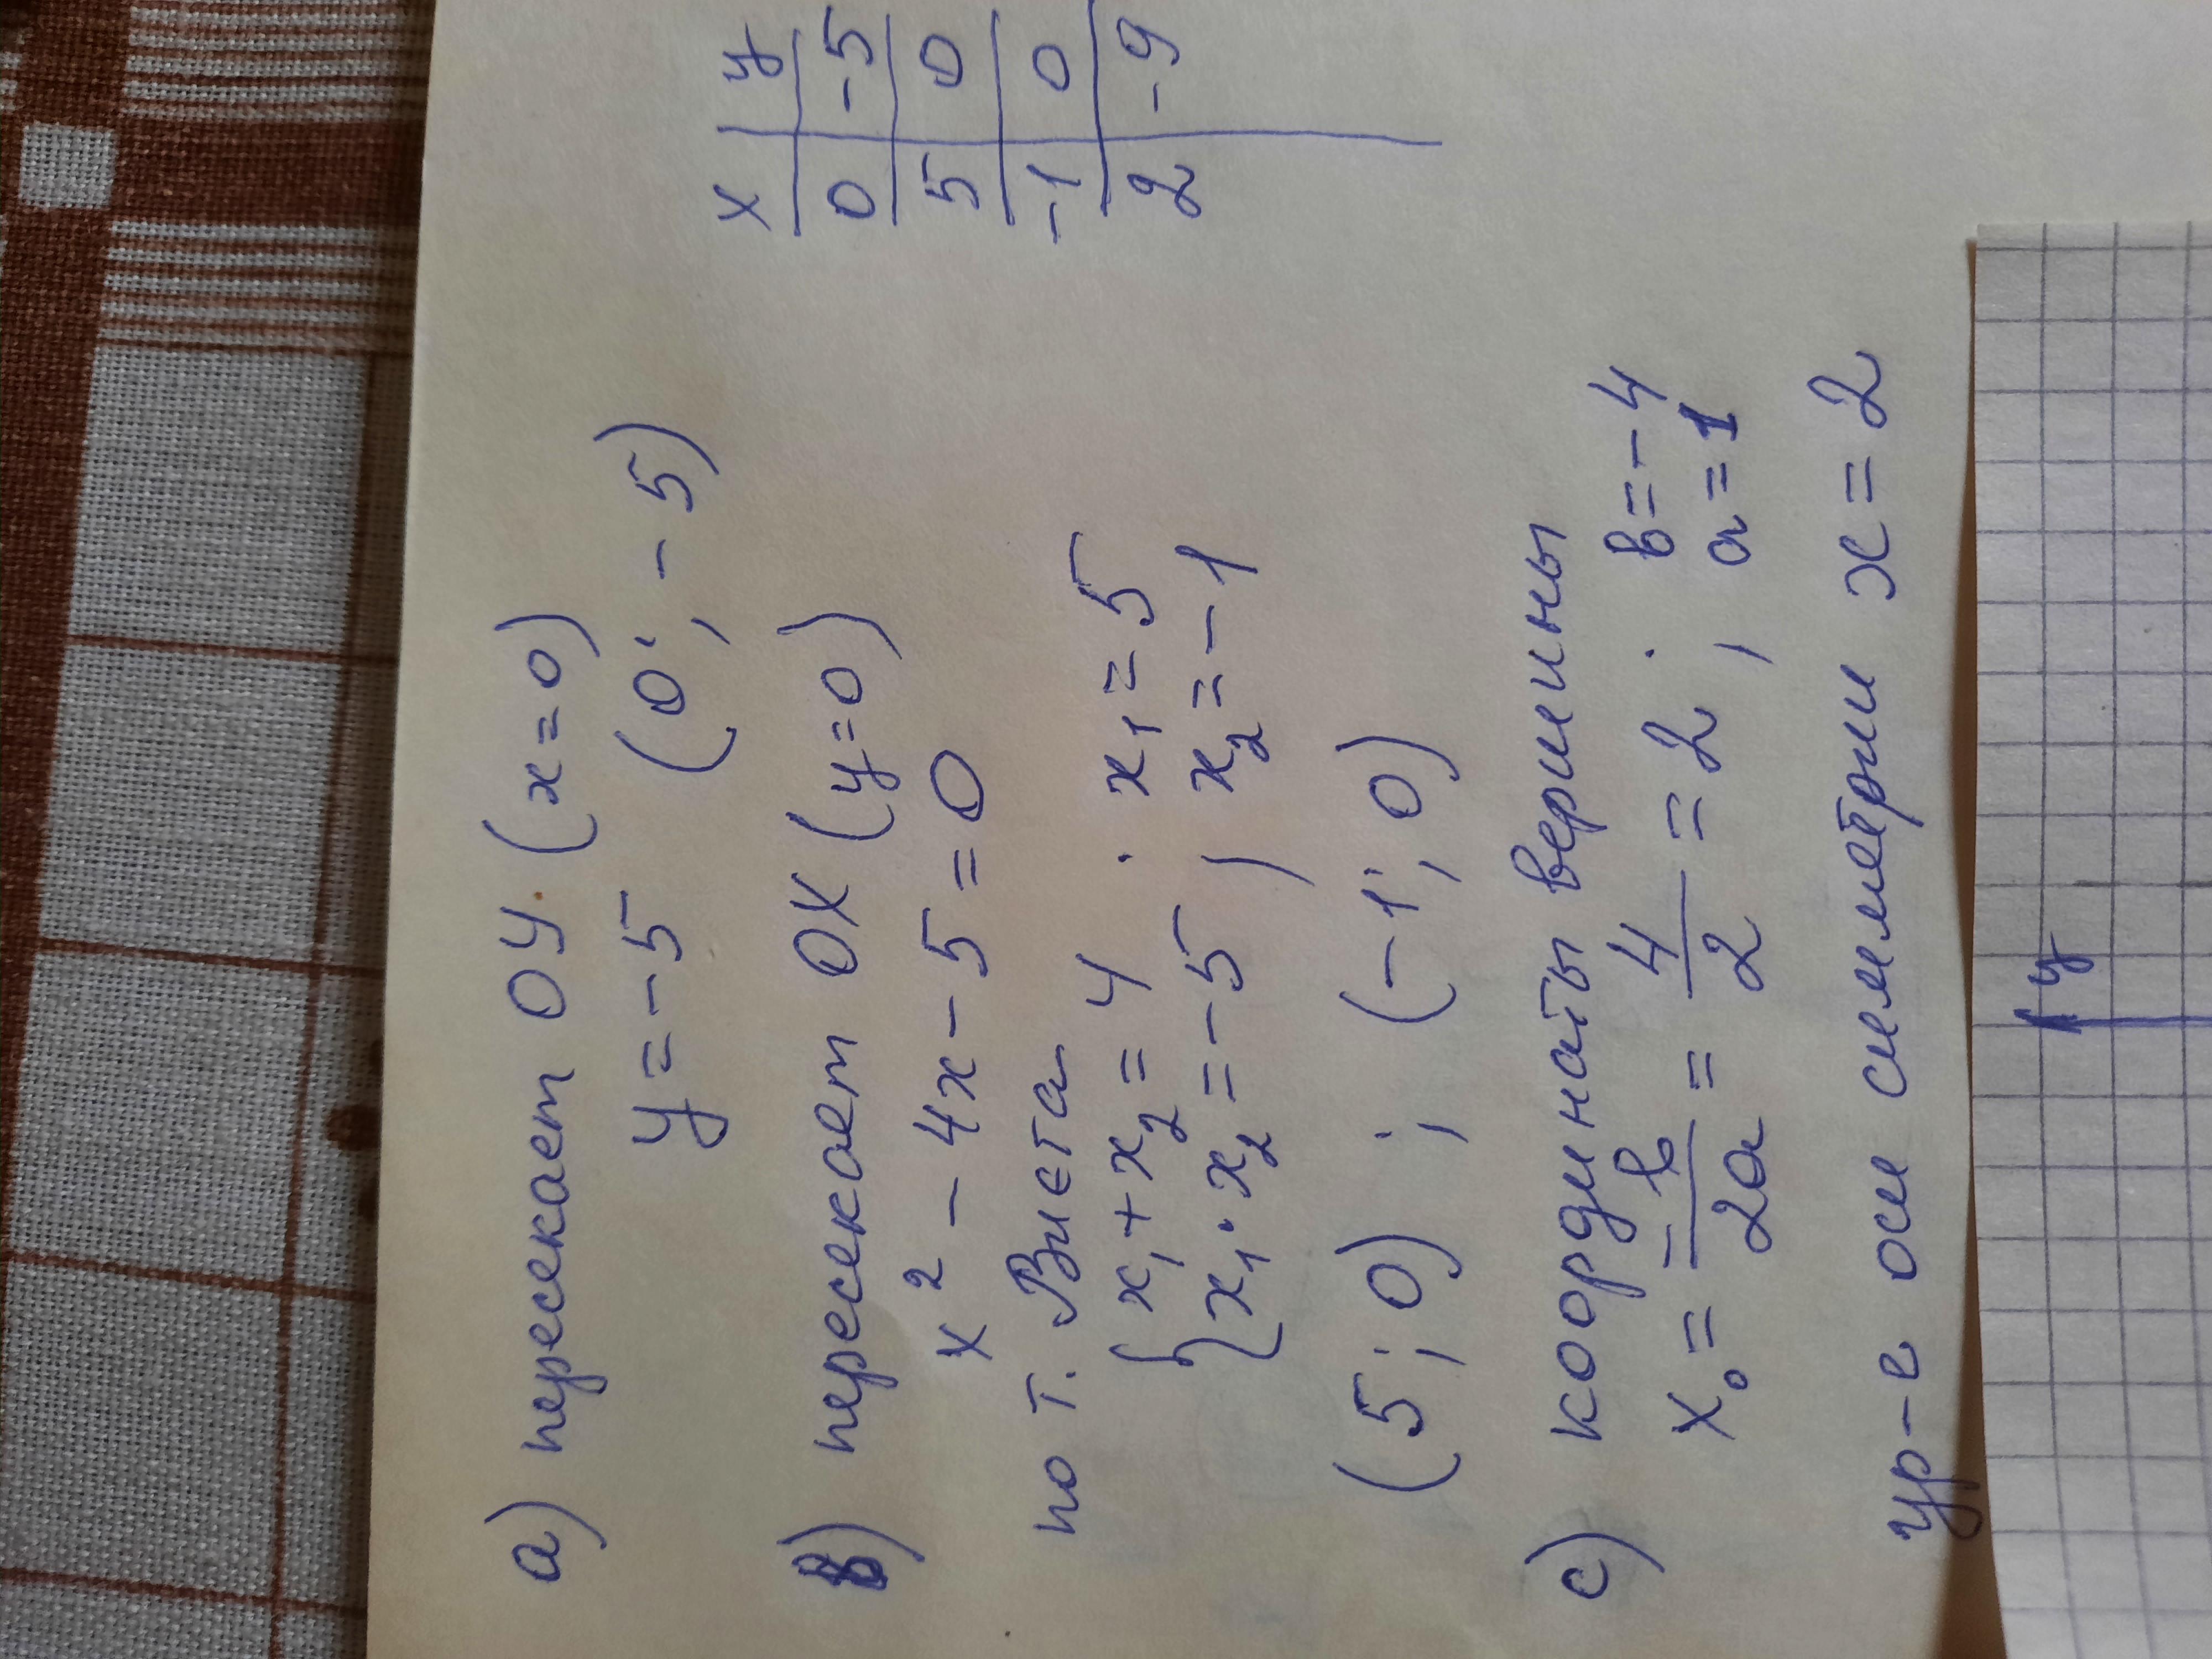 а) пересекает ОУ. (x=0)
y=-5 (0; -5)
в) пересекает ОХ (y=0)
x² - 4x - 5 = 0
по т. Виета
{ x₁ + x₂ = 4 ; x₁ = 5
x₁ · x₂ = -5 x₂ = -1
(5; 0) ; (-1; 0)
с) координаты вершины
x₀ = -в/2a = 4/2 = 2 ; в = -4
a = 1
ур-е оси симметрии x = 2
x y
0 -5
5 0
-1 0
2 -9
y